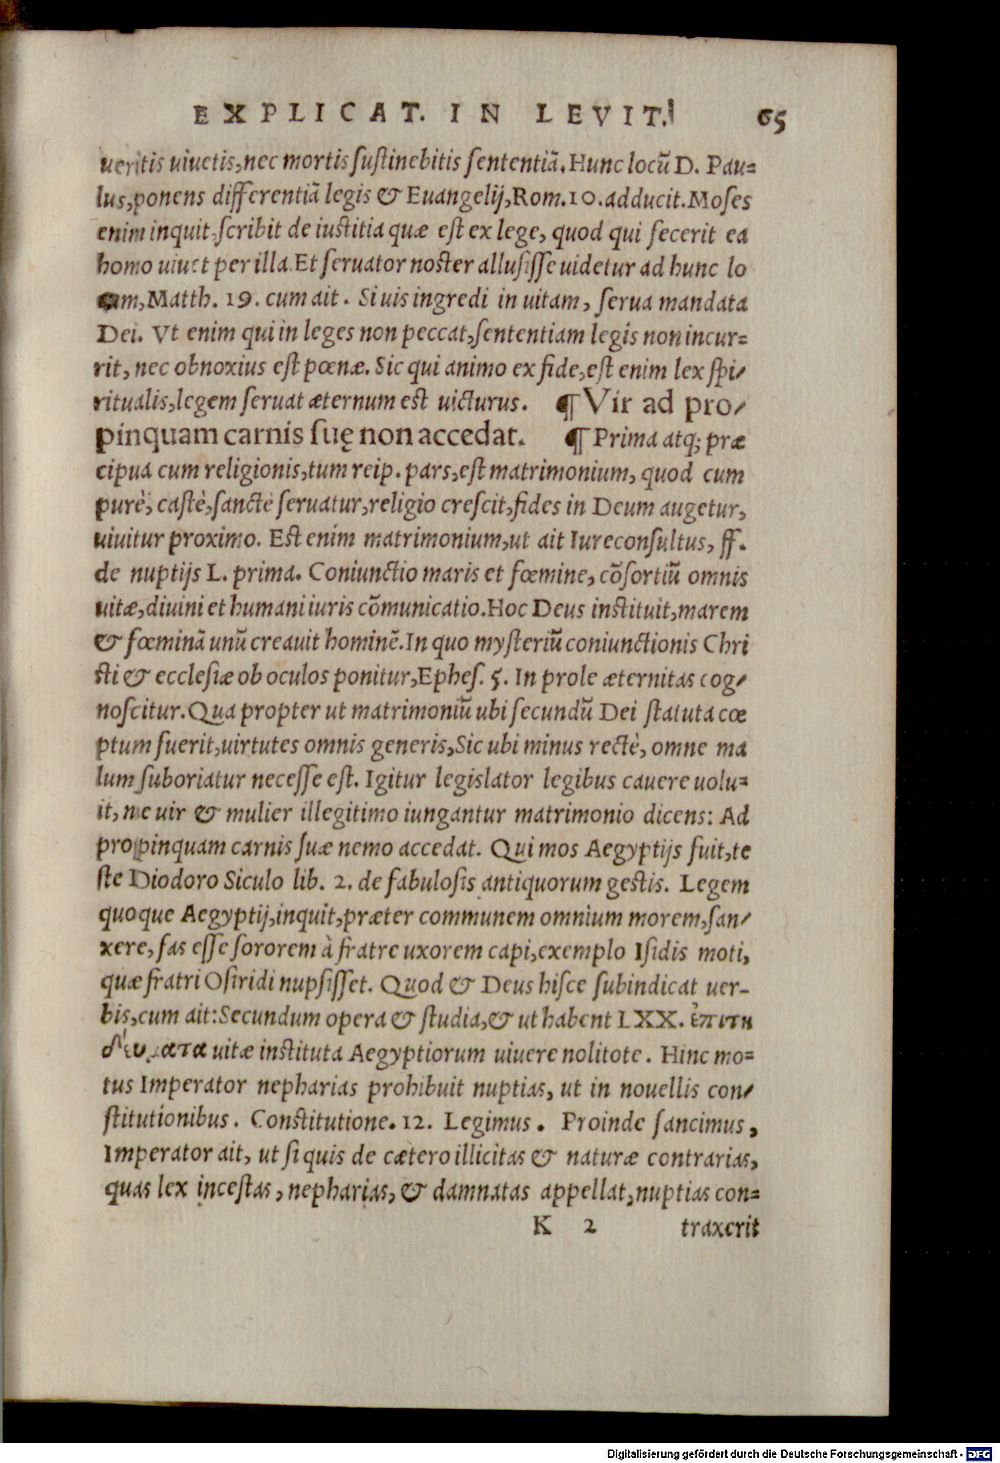 EXPLICAT. IN LEVIT. 65
ueritis uiuetis, nec mortis sustinebitis sententiã. Hunc locũ D. Pau=
lus, ponens differentiã legis & Euangelij, Rom. 10. adducit. Moses
enim inquit, scribit de iustitia quæ est ex lege, quod qui fecerit ea
homo uiuet per illa. Et seruator noster allusisse uidetur ad hunc lo
cum, Matth. 19. cum ait. Si uis ingredi in uitam, serua mandata
Dei. Vt enim qui in leges non peccat, sententiam legis non incur=
rit, nec obnoxius est pœnæ. Sic qui animo ex fide, est enim lex spi/
ritualis, legem seruat æternum est uicturus. ¶ Vir ad pro/
pinquam carnis suę non accedat. ¶ Prima atq; præ
cipua cum religionis, tum reip. pars, est matrimonium, quod cum
purè, castè, sanctè seruatur, religio crescit, fides in Deum augetur,
uiuitur proximo. Est enim matrimonium, ut ait Iureconsultus, ff.
de nuptijs L. prima. Coniunctio maris et fœmine, cõsortiũ omnis
uitæ, diuini et humani iuris cõmunicatio. Hoc Deus instituit, marem
& fœminã unũ creauit hominẽ. In quo mysteriũ coniunctionis Chri
sti & ecclesiæ ob oculos ponitur, Ephes. 5. In prole æternitas cog/
noscitur. Qua propter ut matrimoniũ ubi secundũ Dei statuta cœ
ptum fuerit, uirtutes omnis generis, Sic ubi minus rectè, omne ma
lum suboriatur necesse est. Igitur legislator legibus cauere uolu=
it, ne uir & mulier illegitimo iungantur matrimonio dicens: Ad
propinquam carnis suæ nemo accedat. Qui mos Aegyptijs fuit, te
ste Diodoro Siculo lib. 2. de fabulosis antiquorum gestis. Legem
quoque Aegyptij, inquit, præter communem omnium morem, san/
xere, fas esse sororem à fratre uxorem capi, exemplo Isidis moti,
quæ fratri Osiridi nupsisset. Quod & Deus hisce subindicat uer-
bis, cum ait: Secundum opera & studia, & ut habent LXX. ἐπιτη
δεύματα uitæ instituta Aegyptiorum uiuere nolitote. Hinc mo=
tus Imperator nepharias prohibuit nuptias, ut in nouellis con/
stitutionibus. Constitutione. 12. Legimus. Proinde sancimus,
Imperator ait, ut si quis de cætero illicitas & naturæ contrarias,
quas lex incestas, nepharias, & damnatas appellat, nuptias con=
K 2 traxerit
Digitalisierung gefördert durch die Deutsche Forschungsgemeinschaft - DFG